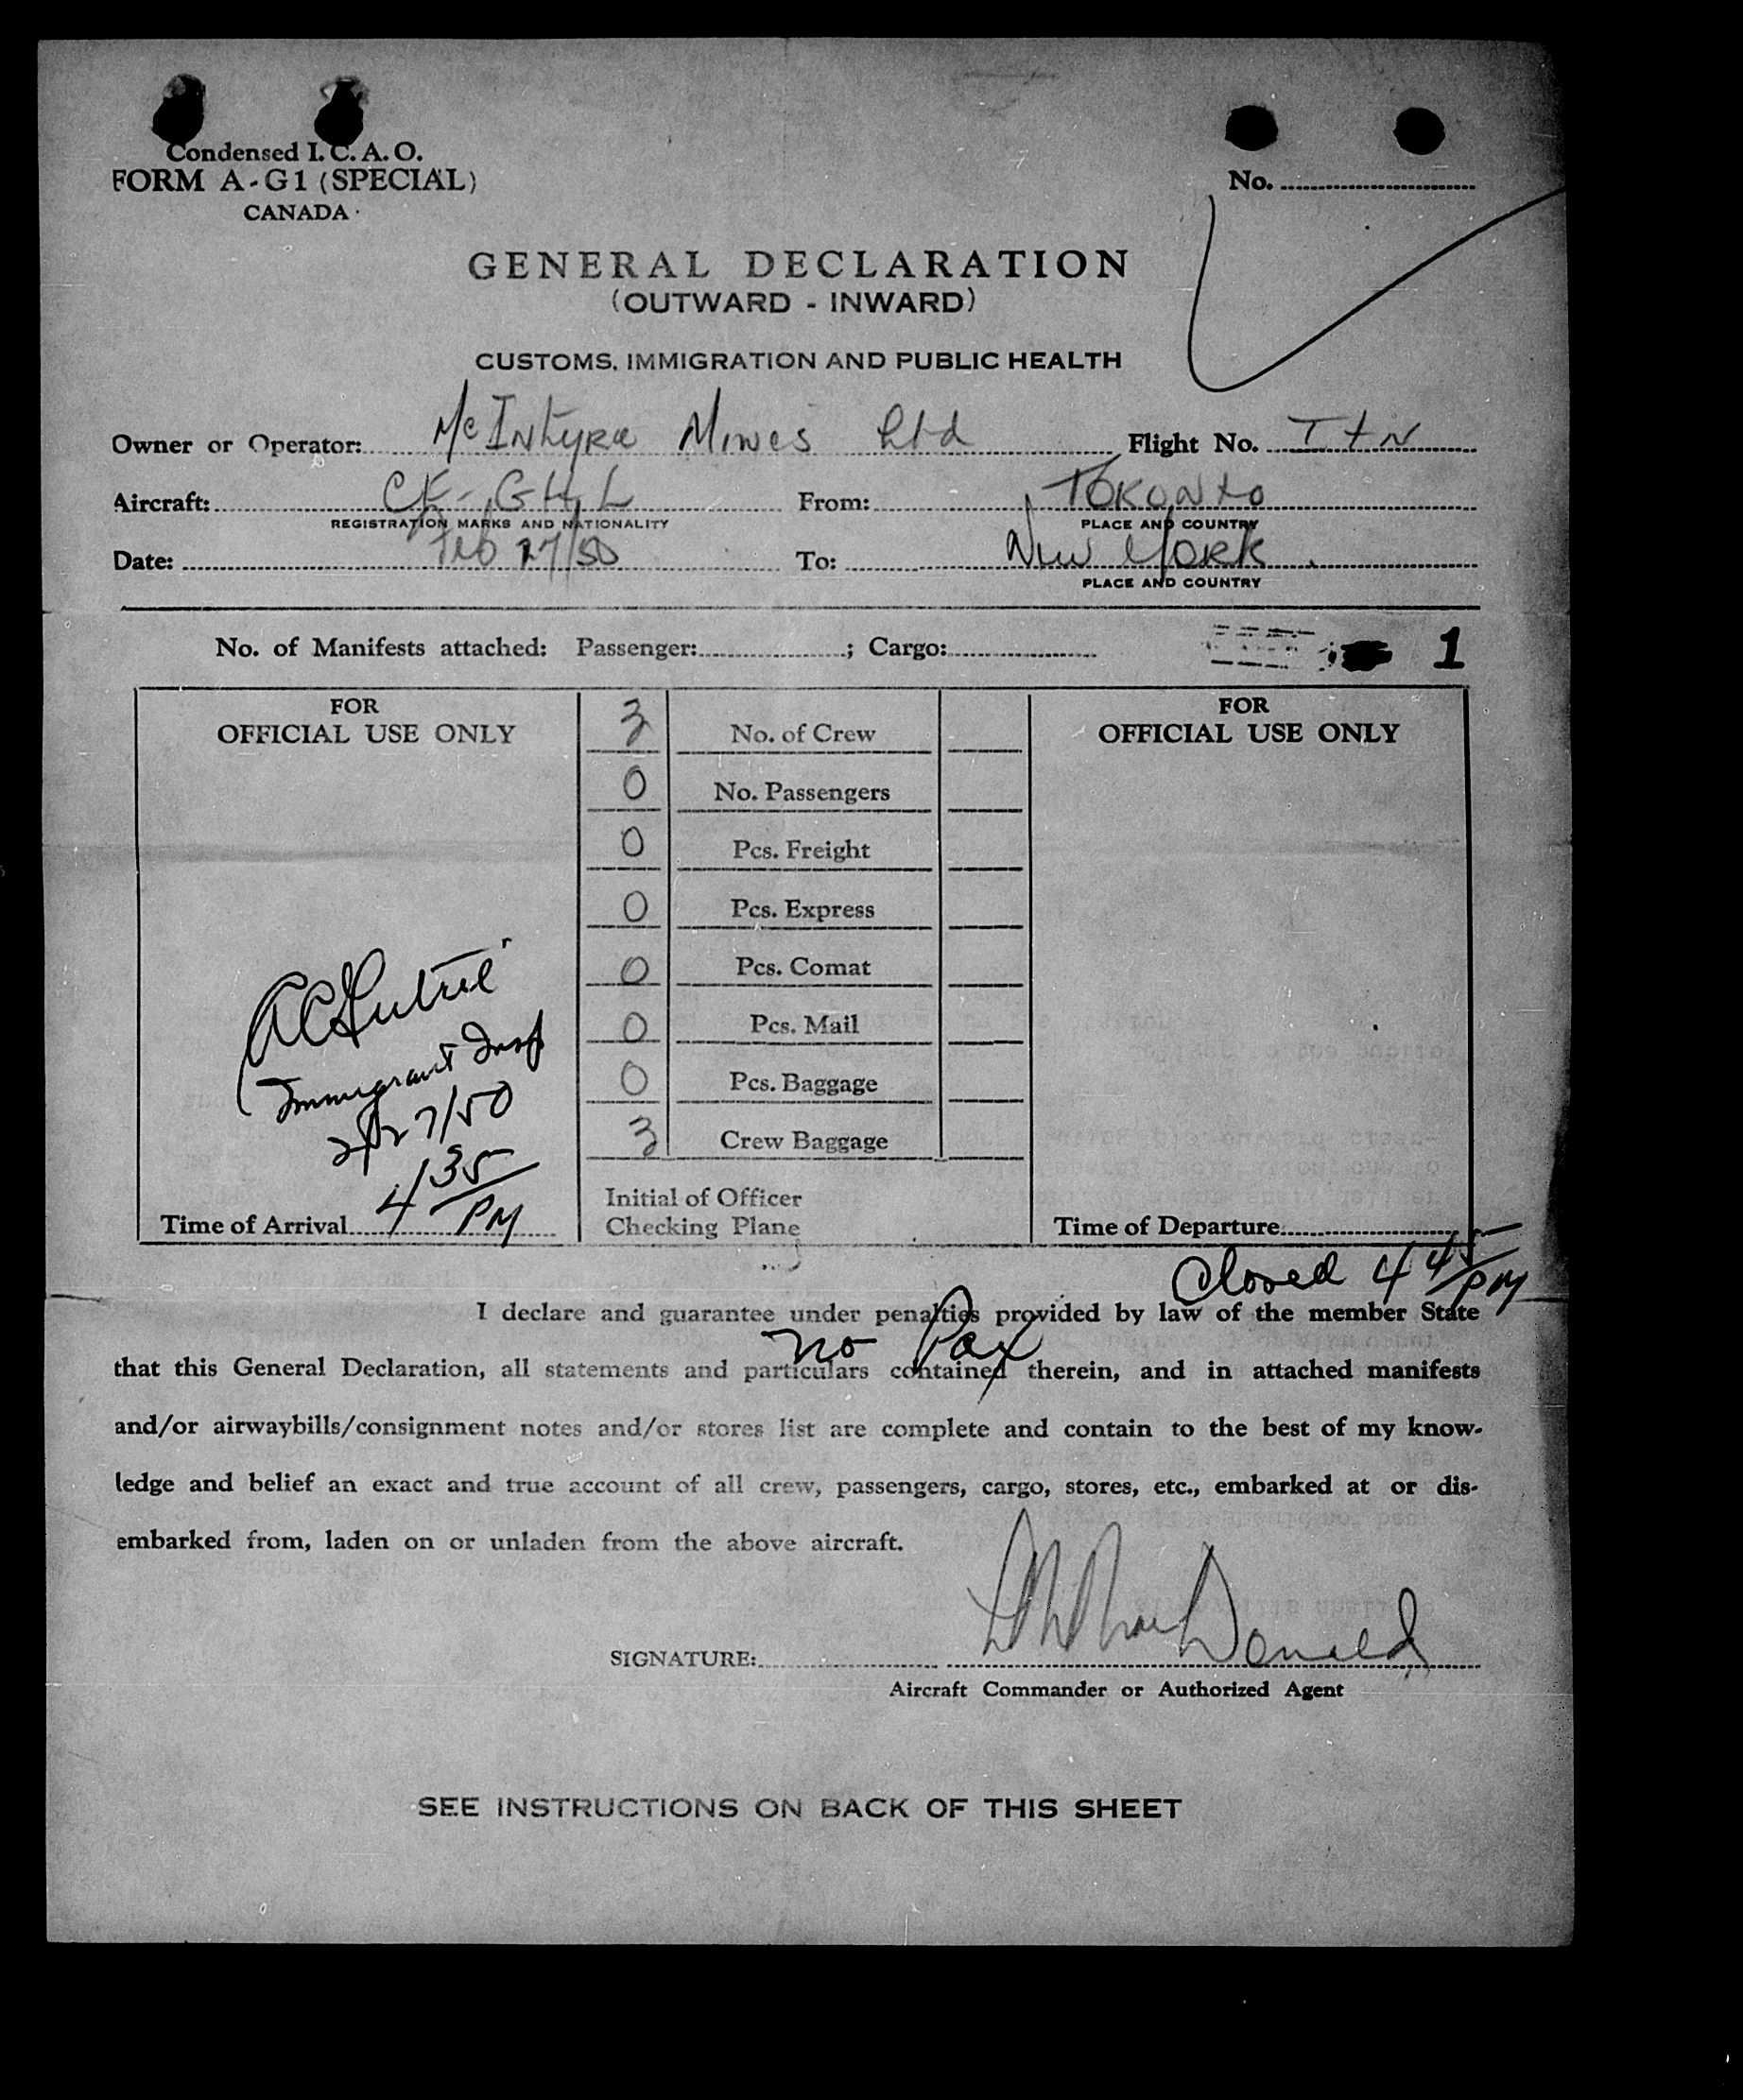 Condensed I. C. A. O.
FORM A-G1 (SPECIAL)
CANADA
No.
GENERAL DECLARATION
(OUTWARD - INWARD)
CUSTOMS, IMMIGRATION AND PUBLIC HEALTH
Owner or Operator: McIntyre Mines Ltd Flight No.
Aircraft: CF-GHL From: TORONTO
REGISTRATION MARKS AND NATIONALITY PLACE AND COUNTRY
Date: Feb 27/50 To: New York
PLACE AND COUNTRY
No. of Manifests attached: Passenger: ; Cargo: 1
FOR
OFFICIAL USE ONLY
3 No. of Crew
0 No. Passengers
0 Pcs. Freight
0 Pcs. Express
0 Pcs. Comat
0 Pcs. Mail
0 Pcs. Baggage
3 Crew Baggage
Initial of Officer
Checking Plane
FOR
OFFICIAL USE ONLY
Immigrant Insp
2/27/50
Time of Arrival 4 35 PM
Time of Departure
Closed 4 45 PM
I declare and guarantee under penalties provided by law of the member State
no Pax
that this General Declaration, all statements and particulars contained therein, and in attached manifests
and/or airwaybills/consignment notes and/or stores list are complete and contain to the best of my know-
ledge and belief an exact and true account of all crew, passengers, cargo, stores, etc., embarked at or dis-
embarked from, laden on or unladen from the above aircraft.
SIGNATURE: MacDonald
Aircraft Commander or Authorized Agent
SEE INSTRUCTIONS ON BACK OF THIS SHEET